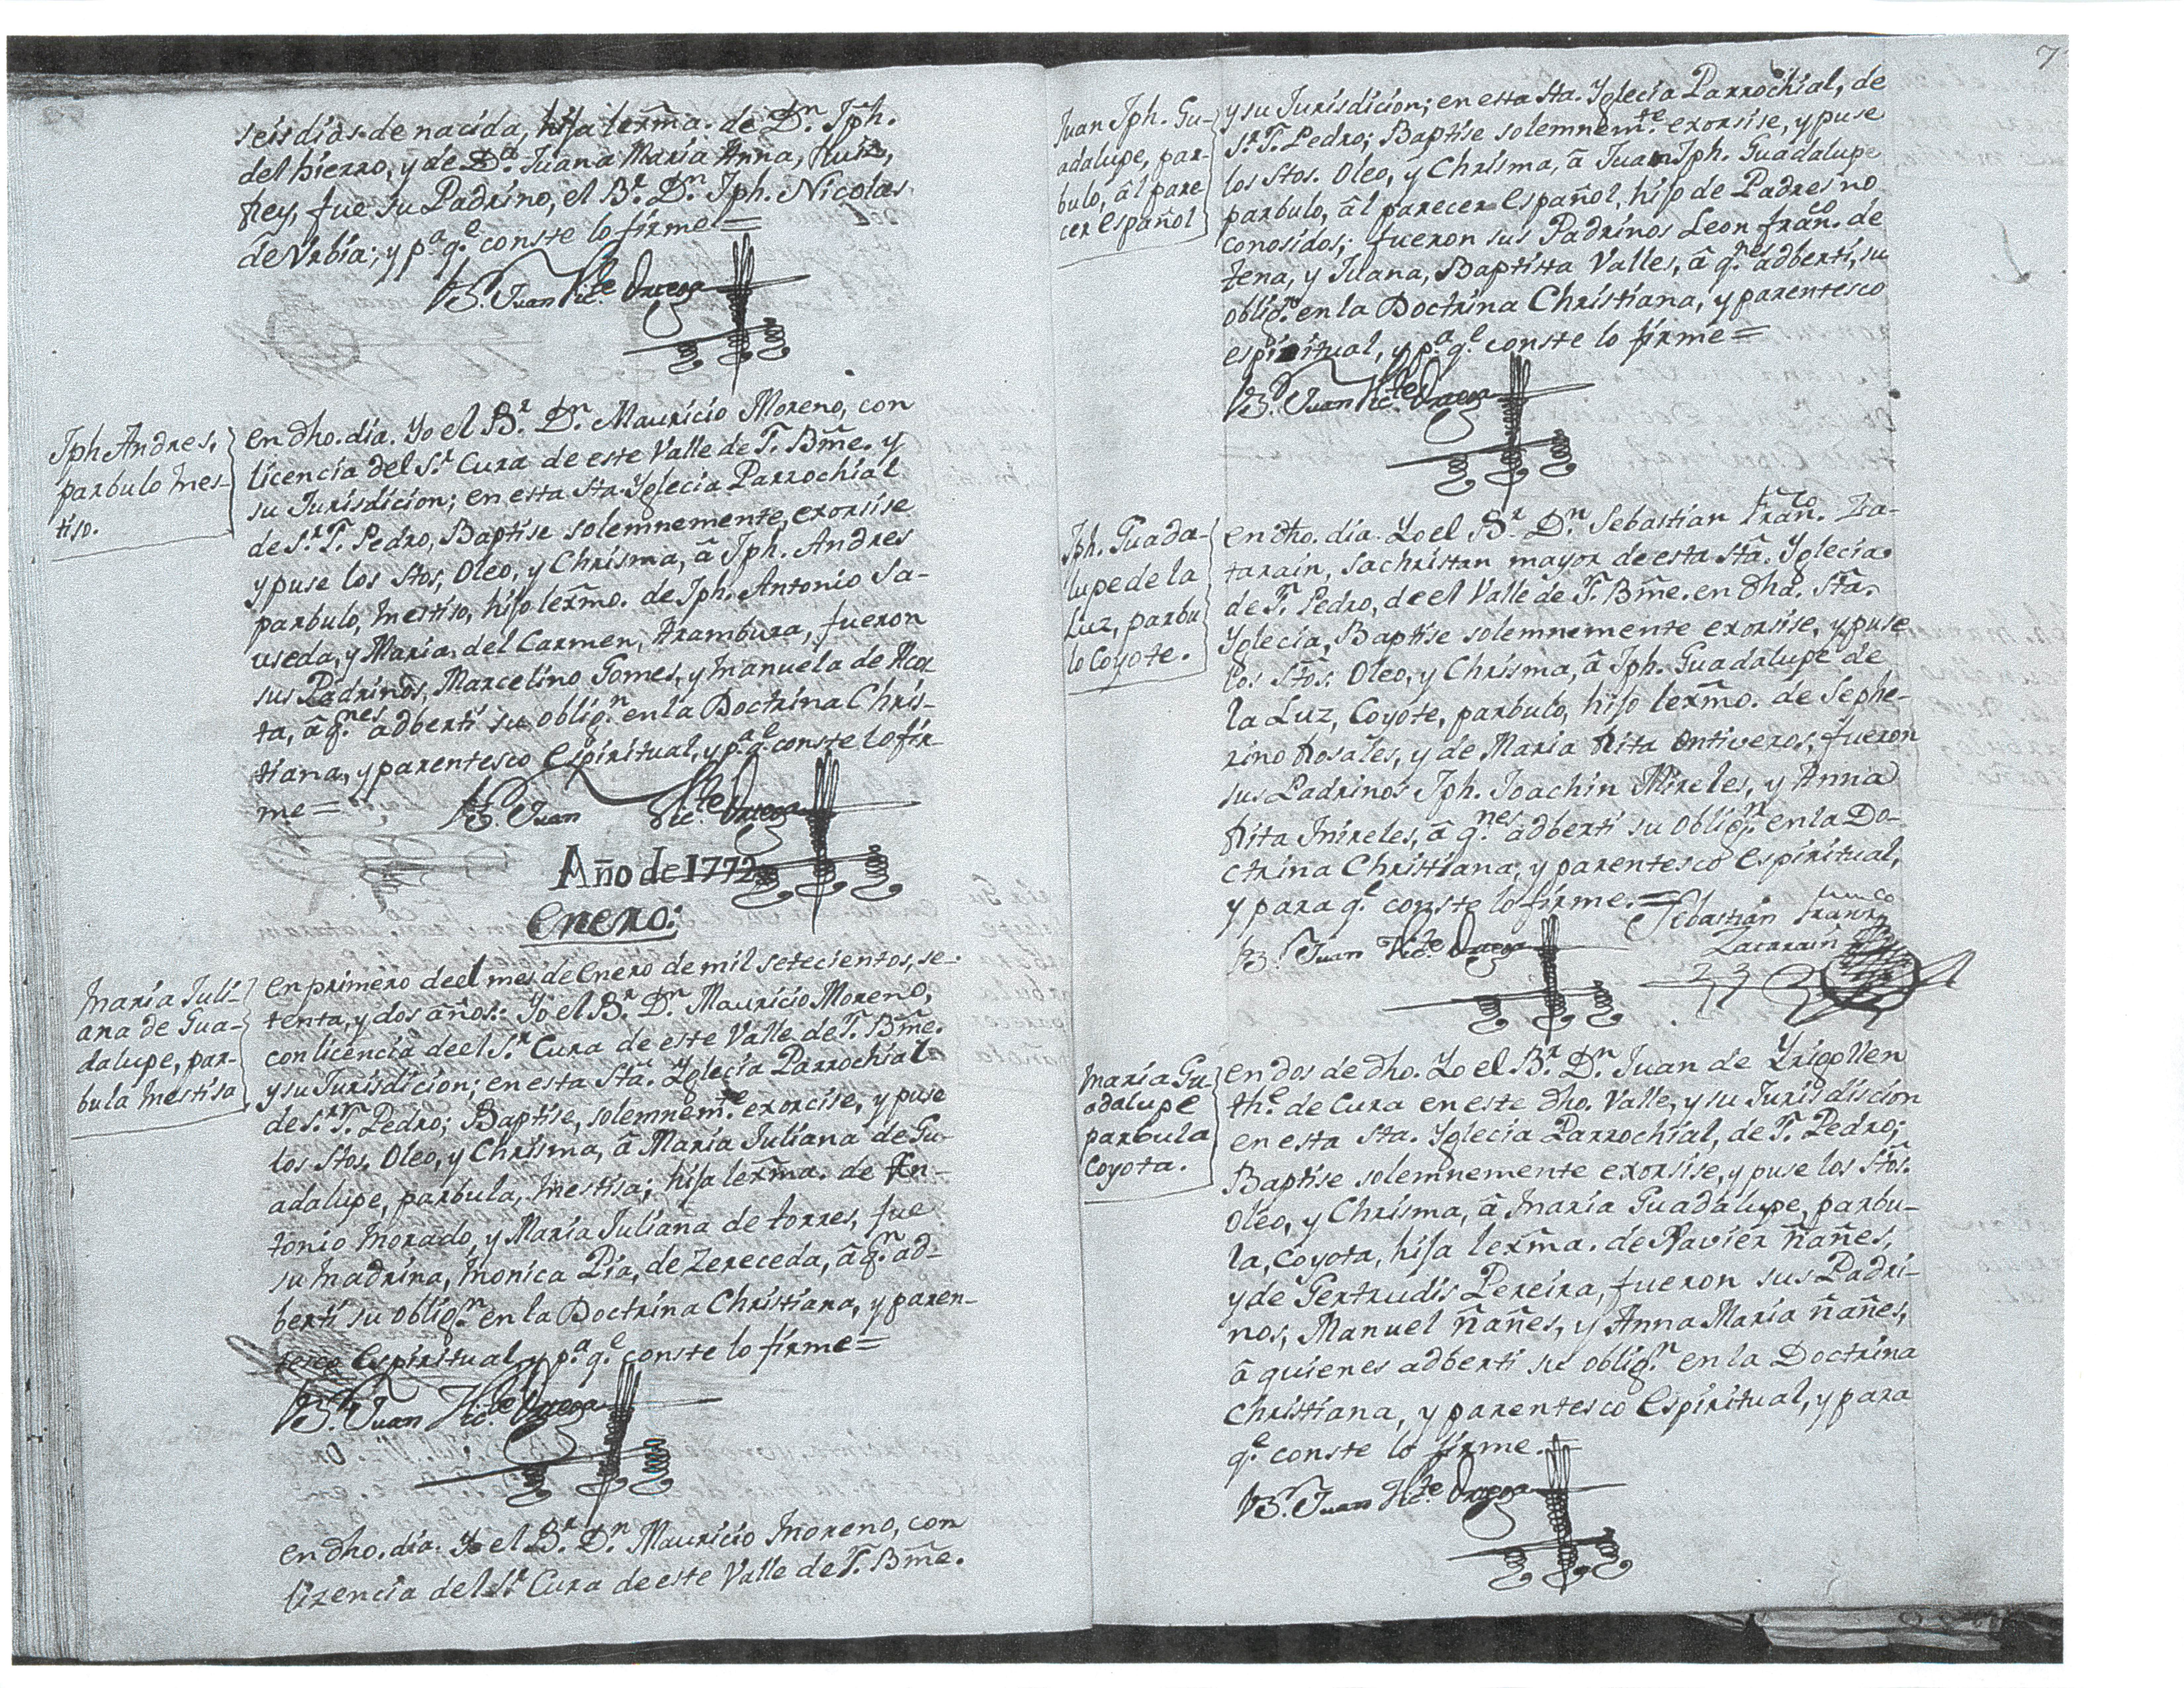 seis dias de nacida, hija lexma. de Dn. Jph.
del hierro, y de Da. Juana Maria Anna, Ruiz,
Rey, fue su Padrino, el Br. Dn. Jph. Nicolas
de Urbia; y pa. qe. conste lo firme =
Br. Juan Victe. Ortega
Jph Andres,
parbulo Mes-
tiso.
en dho. dia. Yo el Br. Dn. Mauricio Moreno, con
licencia del Sr. Cura de este Valle de S. Bme. y
su Jurisdicion; en esta Sta. Yglecia Parrochial
de Sr. S. Pedro, Baptise solemnemente, exorsise
y puse los Stos. Oleo, y Chrisma, â Jph. Andres
parbulo, Mestiso, hijo lexmo. de Jph. Antonio Sa-
useda, y Maria del Carmen, Arambura, fueron
sus Padrinos, Marcelino Gomes, y Manuela de Acos
ta, â qnes. adberti su obligon. en la Doctrina Chris-
tiana, y parentesco Espiritual, y pa. qe. conste lo fir-
me =
Br. Juan Victe. Ortega
Año de 1772
Enero:
Maria Juli-
ana de Gua-
dalupe, par-
bula Mestisa
en primero de el mes de Enero de mil setecientos, se-
tenta, y dos años: Yo el Br. Dn. Mauricio Moreno,
con licencia de el Sr. Cura de este Valle de S. Bme.
y su Jurisdicion; en esta Sta. Yglecia Parrochial
de Sr. S. Pedro; Baptise, solemnemte. exorcise, y puse
los Stos. Oleo, y Chrisma, â Maria Juliana de Gu-
adalupe, parbula, Mestisa; hija lexma. de An-
tonio Morado, y Maria Juliana de torres, fue
su Madrina, Monica Pia, de Zereceda, â qn. ad-
berti su obligon. en la Doctrina Christiana, y paren-
tesco Espiritual, y pa. qe. conste lo firme =
Br. Juan Victe. Ortega
en dho. dia. Yo el Br. Dn. Mauricio Moreno, con
lizencia del Sr. Cura de este Valle de S. Bme.
7
Juan Jph. Gu-
adalupe, par-
bulo, âl pare
cer Español
y su Jurisdicion; en esta Sta. Yglecia Parrochial, de
Sr. S. Pedro; Baptise solemnemte. exorsise, y puse
los Stos. Oleo, y Chrisma, â Juan Jph. Guadalupe
parbulo, âl parecer Español, hijo de Padres no
conosidos; fueron sus Padrinos Leon Franco. de
Zena, y Juana, Baptista Valles, â qnes. adberti, su
obligon. en la Doctrina Christiana, y parentesco
espiritual, y pa. qe. conste lo firme =
Br. Juan Victe. Ortega
Jph. Guada-
lupe de la
Luz, parbu
lo Coyote.
en dho. dia. Yo el Br. Dn. Sebastian Franco. Za-
tarain, Sachristan mayor de esta Sta. Yglecia
de S. Pedro, de el Valle de S. Bme. en dha. Sta.
Yglecia, Baptise solemnemente exorsise, y puse
los Stos. Oleo, y Chrisma, â Jph. Guadalupe de
la Luz, Coyote, parbulo, hijo lexmo. de Sephe-
rino Rosales, y de Maria Rita Ontiveros, fueron
sus Padrinos Jph. Joachin Mireles, y Anna
Rita Mireles, â qnes. adberti su obligon. en la Do-
ctrina Christiana; y parentesco Espiritual,
y para qe. conste lo firme. =
Sebastian Franco
Zatarain
Br. Juan Victe. Ortega
Maria Gu-
adalupe
parbula
Coyota.
en dos de dho. Yo el Br. Dn. Juan de Yrigollen
the. de Cura en este dho. Valle, y su Jurisdiscion
en esta Sta. Yglecia Parrochial, de S. Pedro;
Baptise solemnemente exorsise, y puse los Stos.
Oleo, y Chrisma, â Maria Guadalupe, parbu-
la, Coyota, hija lexma. de Xavier ñañes,
y de Gertrudis Pereira, fueron sus Padri-
nos, Manuel ñañes, y Anna Maria ñañes,
â quienes adberti su obligon. en la Doctrina
Christiana, y parentesco Espiritual, y para
qe. conste lo firme. =
Br. Juan Victe. Ortega